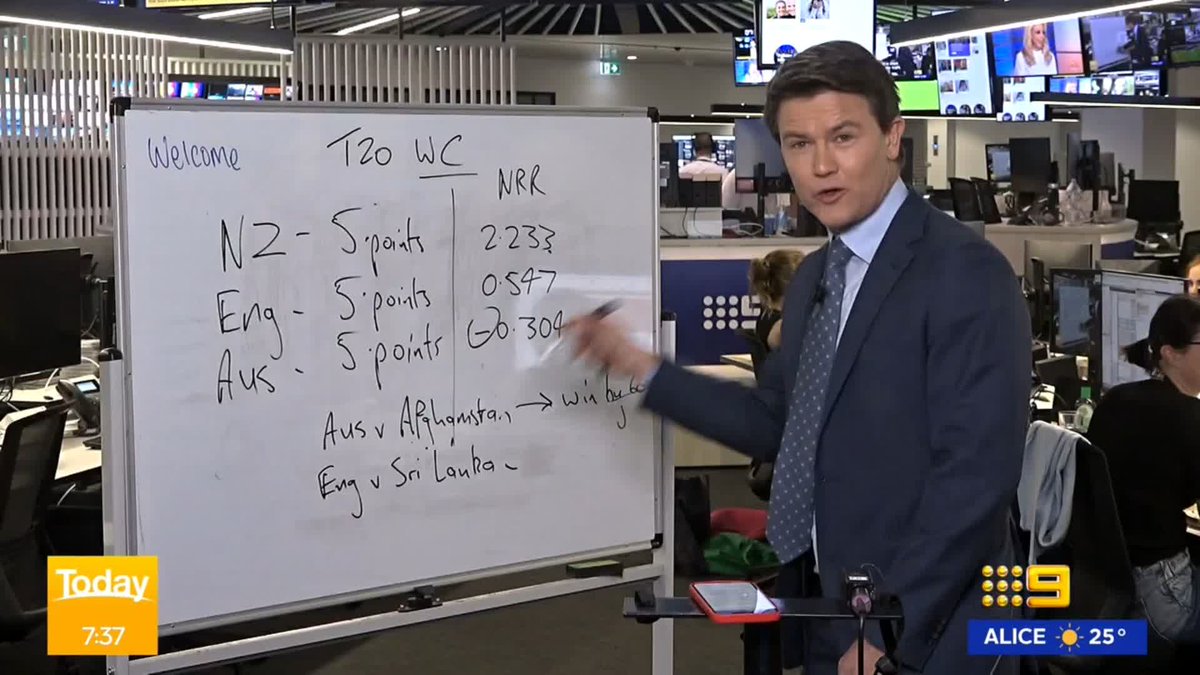 Welcome
T20 WC
NRR
NZ - 5 points 2.233
Eng - 5 points 0.547
Aus - 5 points (-)0.304
Aus v Afghanistan → win by
Eng v Sri Lanka -
Today
7:37
9
ALICE 25°